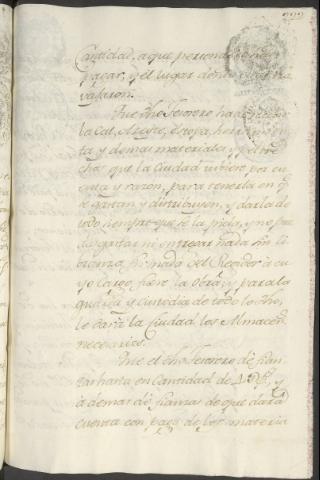 Cantidad, a que
pagar, y el lugar donde
Que dho Tesorero haia
la Cal, Azeyte, estopa, herra
ta y demas materiales, y
cha que la Ciudad tubiere por cu
enta y razon, para tenerla en q
se gastan y distribuyen, y darla de
todo siempre que se la pida, y no pue
da gastar ni entregar nada sin li
branza firmada del Rexidor à cu
yo cargo fuere la Obra, y para la
guardia y custodia de todo lo dho,
le dará la Ciudad los Almacens
necesarios.
Que el dho Tesorero de fian
zas hasta en Cantidad de y
à demas de fianzas de que dará
cuenta con pago de los materia